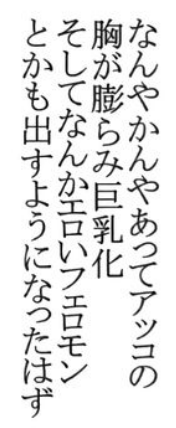 なんやかんやあってアッコの
胸が膨らみ巨乳化
そしてなんかエロいフェロモン
とかも出すようになったはず